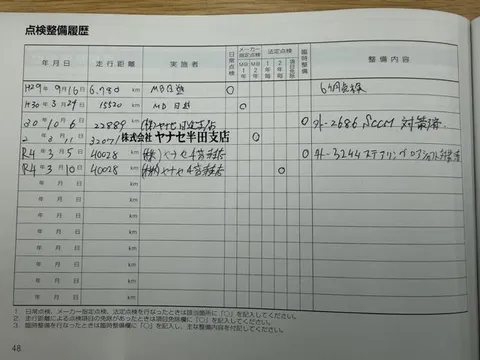 点検整備履歴
年月日 走行距離 実施者 日常点検 メーカー指定点検 法定点検 臨時整備 整備内容
MB1年 MB2年 1年毎 2年毎
H29年 9月16日 6,780 km MB日進 ○ 6ヶ月点検
H30年 3月29日 15520 km MB日進 ○
30年 10月6日 22889 km ○ 外-2686 SCCM 対策済
2年 3月11日 32071 km 株式会社 ヤナセ半田支店 ○
R4年 3月5日 40028 km (株)ヤナセ ○ 外-3244 ステアリング
R4年 3月10日 40028 km (株)ヤナセ ○
年 月 日 km
年 月 日 km
年 月 日 km
年 月 日 km
年 月 日 km
年 月 日 km
年 月 日 km
1. 日常点検、メーカー指定点検、法定点検を行なったときは該当箇所に「○」を記入してください。
2. 走行距離による点検項目の免除があったときは項目免除欄に「○」を記入してください。
3. 臨時整備を行なったときは臨時整備欄に「○」を記入し、主な整備内容を付記してください。
48